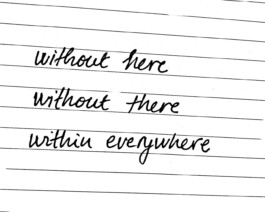 without here
without there
within everywhere